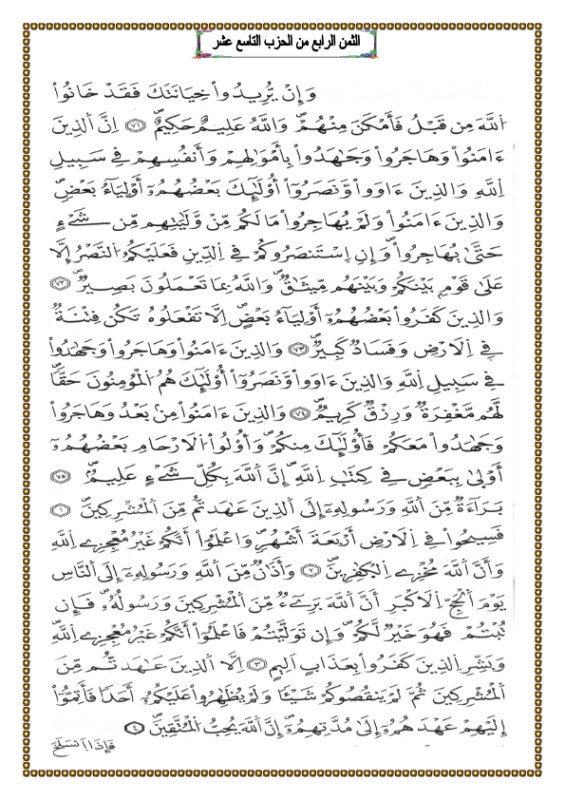 الثمن الرابع من الحزب التاسع عشر
وَإِنْ يُّرِيدُواْ خِيَانَتَكَ فَقَدْ خَانُواْ
اُللَّهَ مِن قَبْلُ فَأَمْكَنَ مِنْهُمْ وَاللَّهُ عَلِيمٌ حَكِيمٌ ٧١ إِنَّ اَلذِينَ
ءَامَنُواْ وَهَاجَرُواْ وَجَٰهَدُواْ بِأَمْوَٰلِهِمْ وَأَنفُسِهِمْ فِي سَبِيلِ
اِللَّهِ وَالذِينَ ءَاوَواْ وَّنَصَرُوٓاْ أُوْلَٰٓئِكَ بَعْضُهُمُۥٓ أَوْلِيَآءُ بَعْضٍ
وَالذِينَ ءَامَنُواْ وَلَمْ يُهَاجِرُواْ مَا لَكُم مِّنْ وَّلَٰيَتِهِم مِّن شَےْءٍ
حَتَّىٰ يُهَاجِرُواْ وَإِنِ اِسْتَنصَرُوكُمْ فِي اِلدِّينِ فَعَلَيْكُمُ اُلنَّصْرُ إِلَّا
عَلَىٰ قَوْمِۢ بَيْنَكُمْ وَبَيْنَهُم مِّيثَٰقٌ وَاللَّهُ بِمَا تَعْمَلُونَ بَصِيرٌ ٧٢
وَالذِينَ كَفَرُواْ بَعْضُهُمُۥٓ أَوْلِيَآءُ بَعْضٍ اِلَّا تَفْعَلُوهُ تَكُن فِتْنَةٌ
فِي اِلَارْضِ وَفَسَادٌ كَبِيرٌ ٧٣ وَالذِينَ ءَامَنُواْ وَهَاجَرُواْ وَجَٰهَدُواْ
فِي سَبِيلِ اِللَّهِ وَالذِينَ ءَاوَواْ وَّنَصَرُوٓاْ أُوْلَٰٓئِكَ هُمُ اُلْمُؤْمِنُونَ حَقّاً
لَّهُم مَّغْفِرَةٌ وَرِزْقٌ كَرِيمٌ ٧٤ وَالذِينَ ءَامَنُواْ مِنۢ بَعْدُ وَهَاجَرُواْ
وَجَٰهَدُواْ مَعَكُمْ فَأُوْلَٰٓئِكَ مِنكُمْ وَأُوْلُواْ اُلَارْحَامِ بَعْضُهُمُۥٓ
أَوْلَىٰ بِبَعْضٍ فِي كِتَٰبِ اِللَّهِ إِنَّ اَللَّهَ بِكُلِّ شَےْءٍ عَلِيمٌ ٧٥
بَرَآءَةٌ مِّنَ اَللَّهِ وَرَسُولِهِۦٓ إِلَى اَلذِينَ عَٰهَدتُّم مِّنَ اَلْمُشْرِكِينَ ١
فَسِيحُواْ فِي اِلَارْضِ أَرْبَعَةَ أَشْهُرٍ وَاعْلَمُوٓاْ أَنَّكُمْ غَيْرُ مُعْجِزِے اِللَّهِ
وَأَنَّ اَللَّهَ مُخْزِے اِلْكٰفِرِينَ ٢ وَأَذَٰنٌ مِّنَ اَللَّهِ وَرَسُولِهِۦٓ إِلَى اَلنَّاسِ
يَوْمَ اَلْحَجِّ اِلَاكْبَرِ أَنَّ اَللَّهَ بَرِےٓءٌ مِّنَ اَلْمُشْرِكِينَ وَرَسُولُهُۥ فَإِن
تُبْتُمْ فَهُوَ خَيْرٌ لَّكُمْ وَإِن تَوَلَّيْتُمْ فَاعْلَمُوٓاْ أَنَّكُمْ غَيْرُ مُعْجِزِے اِللَّهِ
وَبَشِّرِ اِلذِينَ كَفَرُواْ بِعَذَابٍ اَلِيمٍ ٣ اِلَّا اَلذِينَ عَٰهَدتُّم مِّنَ
اَلْمُشْرِكِينَ ثُمَّ لَمْ يَنقُصُوكُمْ شَيْـٔاً وَلَمْ يُظَٰهِرُواْ عَلَيْكُمُۥٓ أَحَداً فَأَتِمُّوٓاْ
إِلَيْهِمْ عَهْدَهُمُۥٓ إِلَىٰ مُدَّتِهِمُۥٓ إِنَّ اَللَّهَ يُحِبُّ اُلْمُتَّقِينَ ٤
فَإِذَا اَنسَلَخَ